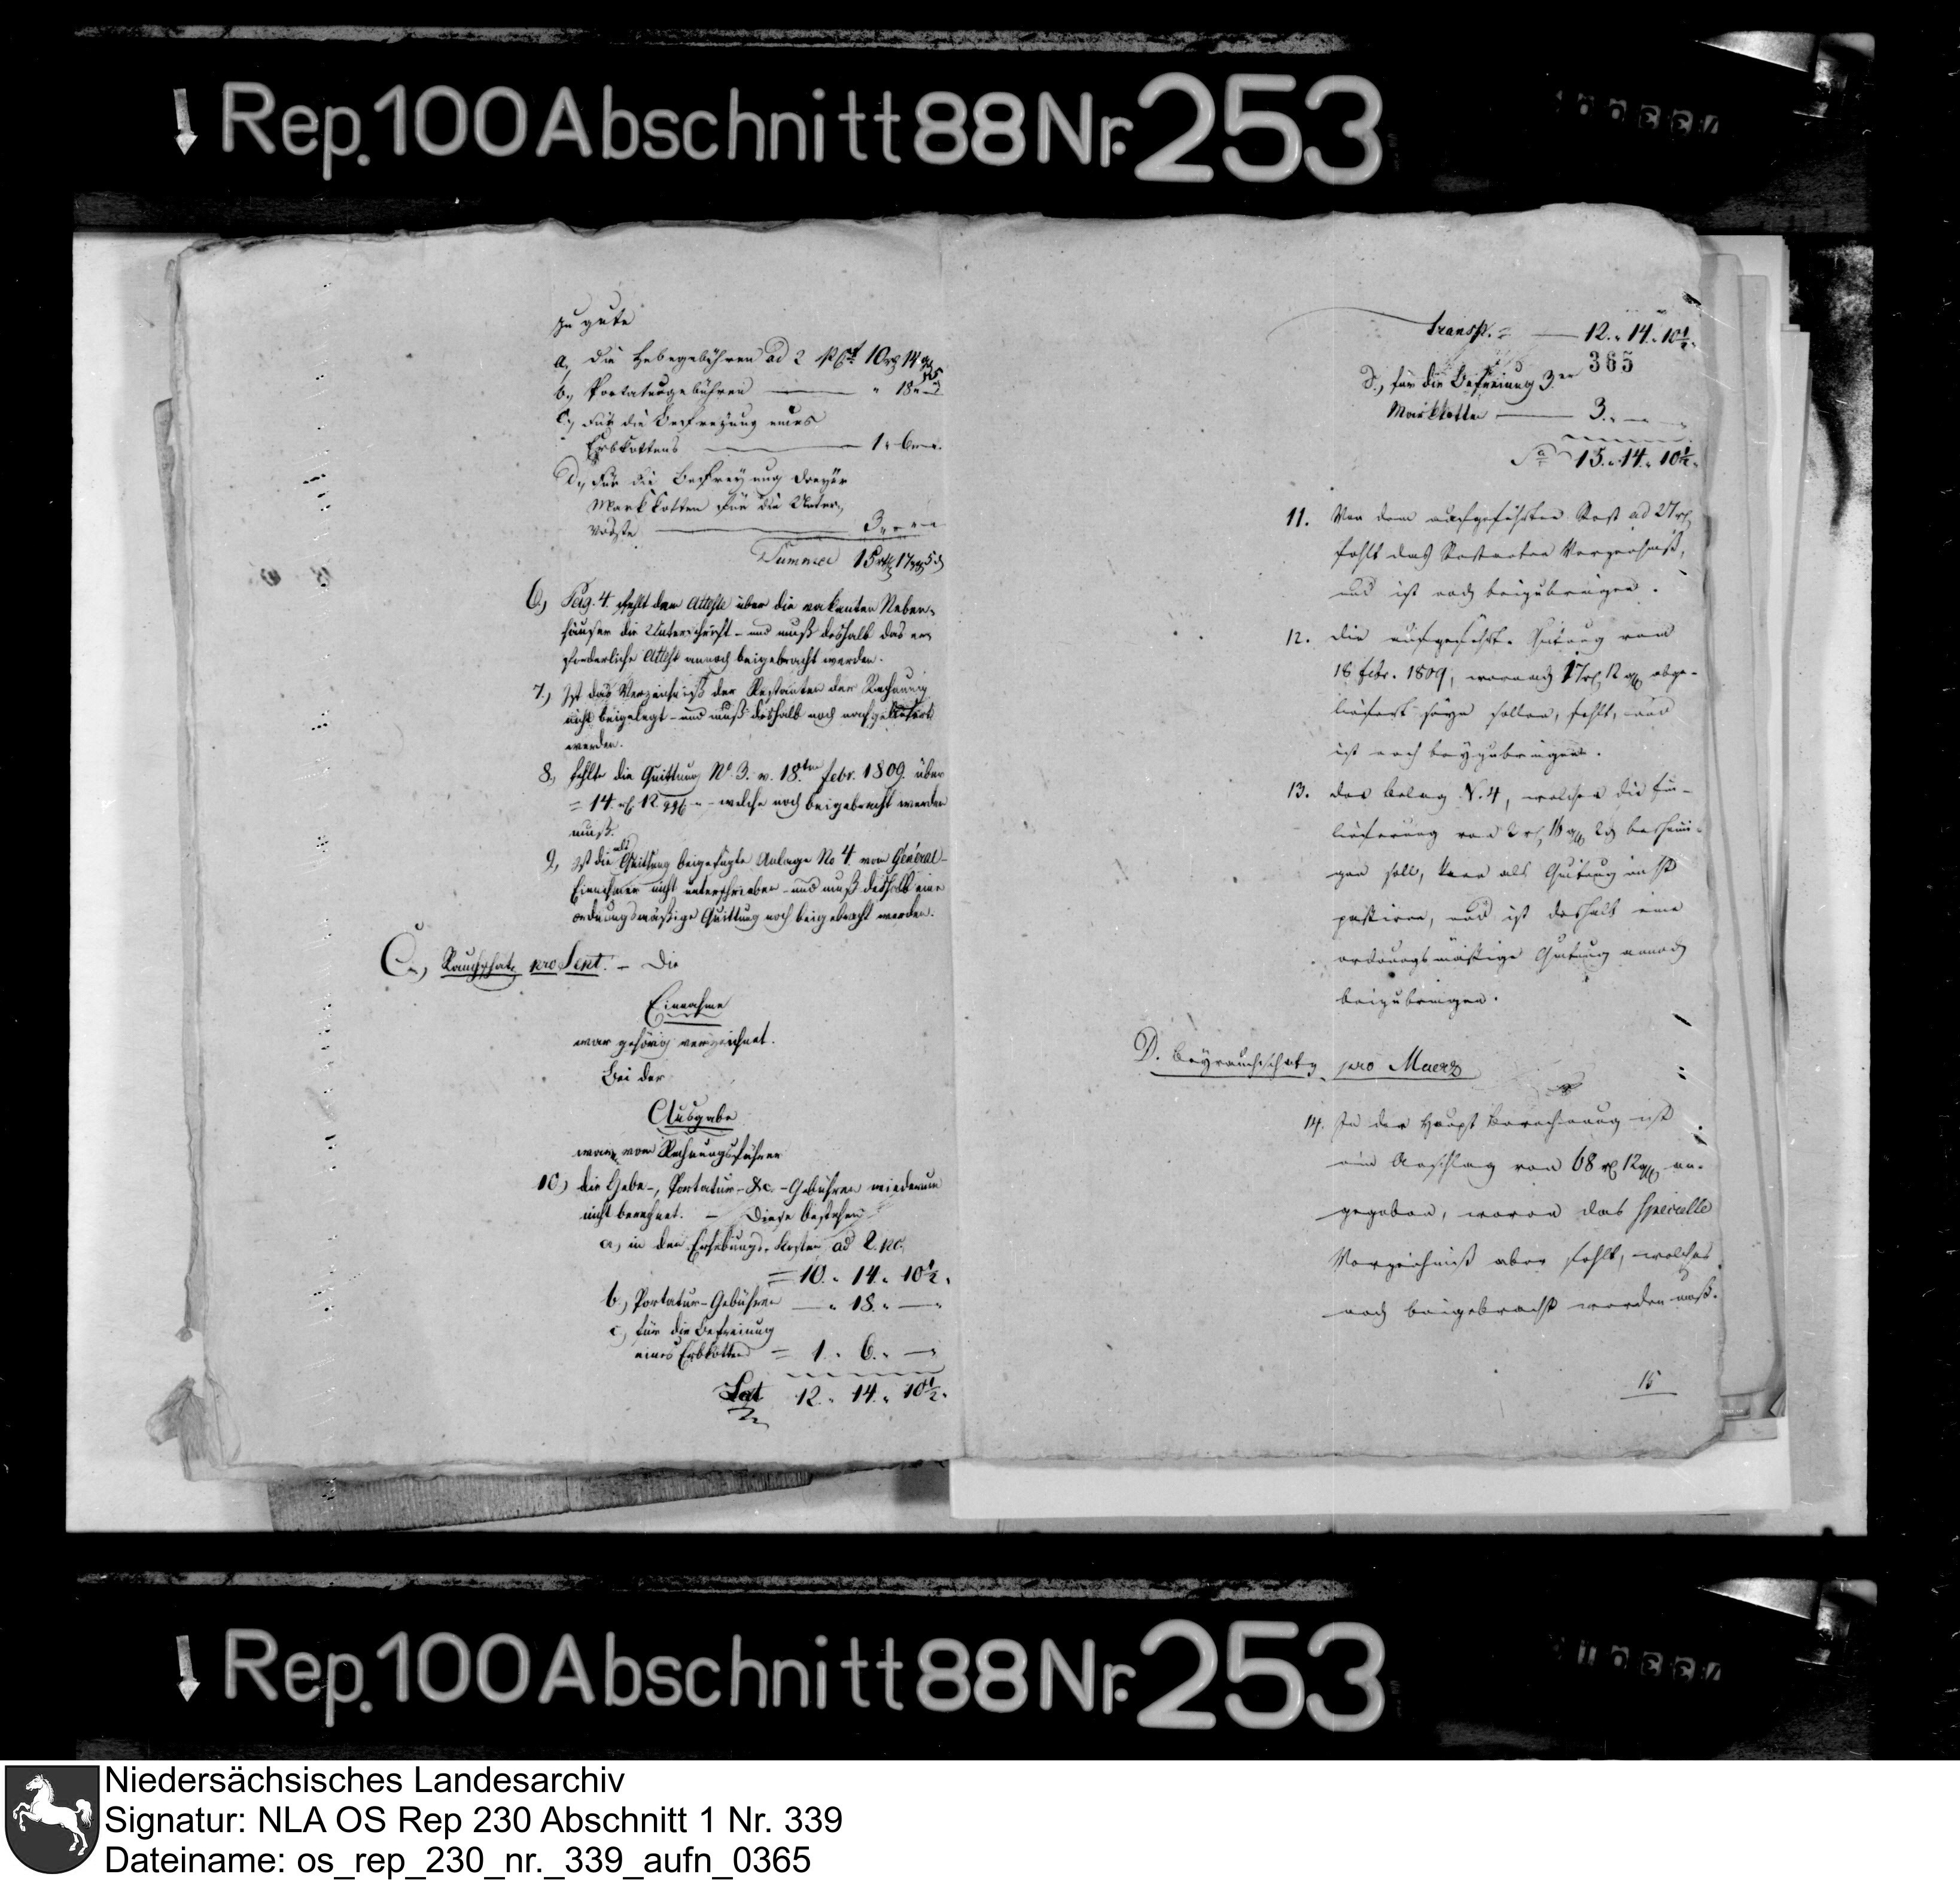 Rep. 100 Abschnitt 88 Nr. 253
zu gute
a., die Hebegebühren ad 2 10 14
b., Portaturgebühren — " 18 "
c., für die Befreyung eines
Erbkottens — 1 " 6 "
d., für die Befreyung dreyer
Markkotten für die Unter,
voigte — 3 " — " —
Summa 15 17 5
6., Pag. 4. fehlt dem Atteste über die vakanten Neben,
häuser die Unterschrift – und muß deshalb das er,
forderliche Attest annoch beigebracht werden.
7., Ist das Verzeichniß der Restanten der Rechnung
nicht beigelegt – und muß deshalb noch nachgeliefert
werden.
8., fehlte die Quittung No. 3. v. 18ten febr. 1809. über
= 14 rℓ 12 ggℓ " – welche noch beigebracht werden
muß.
9., Ist die als Quittung beigefügte Anlage No 4. vom General-
Einnehmer nicht unterschrieben – und muß deshalb eine
ordnungsmäßige Quittung noch beigebracht werden.
C., Rauchschatz pro Sept. – Die
Einnahme
war gehörig verzeichnet.
Bei der
Ausgabe
waren vom Rechnungsführer
10.) die Hebe-, Portatur- &c. -Gebühren wiederum
nicht berechnet. – Diese bestehen
a., in den Erhebungs-Kosten ad 2. pC.
= 10. " 14. " 10½.
b., Portatur-Gebühren — " 18. " — "
c., für die Befreiung
eines Erbkotten = 1. " 6. " — "
Lat 12. " 14. " 10½.
Transp. = — 12. " 14. " 10½.
365
d., für die Befreiung 3er
Markkotten — 3. " —
Sa 15. " 14. " 10½.
11. Von dem aufgeführten Rest ad 27 rℓ
fehlt das Restanten Verzeichniß,
und ist noch beizubringen.
12. die aufgeführte Quitung vom
18 febr. 1809, wornach 17 rℓ 12 ggℓ abge-
liefert seyn sollen, fehlt, und
ist noch beyzubringen.
13. der Belag N. 4, welcher die Ein-
lieferung von 2 rℓ 16 ggℓ 2 ₰ beschein-
gen soll, kann als Quitung nicht
passiren, und ist deshalb eine
ordnungsmäßige Quitung annoch
beizubringen.
D. Beyrauchschatz pro Maerz
14. In der Haupt Berechnung ist
ein Anschlag von 68 rℓ 12 ggℓ an-
gegeben, wovon das specielle
Verzeichniß aber fehlt, welches
noch beigebracht werden muß.
15
Rep. 100 Abschnitt 88 Nr. 253
Niedersächsisches Landesarchiv
Signatur: NLA OS Rep 230 Abschnitt 1 Nr. 339
Dateiname: os_rep_230_nr._339_aufn_0365